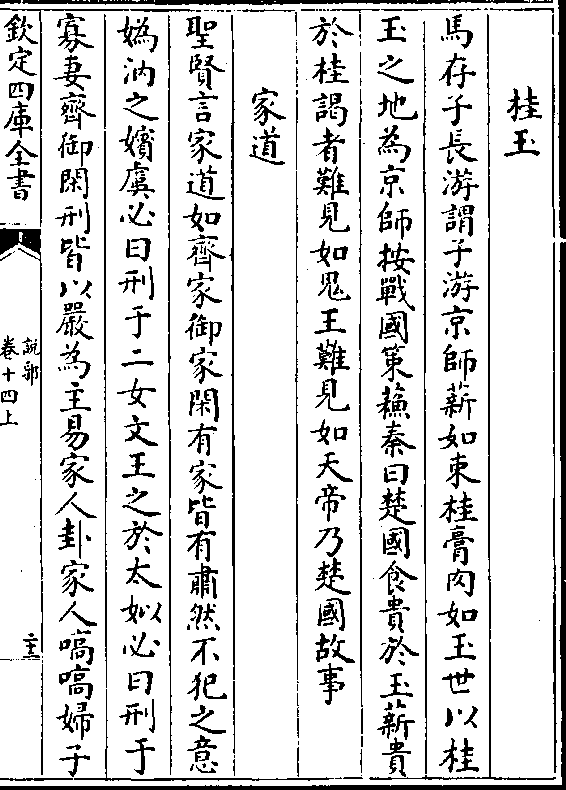 桂玉
馬存子長游謂子游京師薪如束桂膏肉如玉世以桂
玉之地為京師按戰國策蘓秦曰楚國食貴於玉薪貴
於桂謁者難見如鬼王難見如天帝乃楚國故事
家道
聖賢言家道如齊家御家閑有家皆有肅然不犯之意
媯汭之嬪虞必曰刑于二女文王之於太姒必曰刑于
寡妻齊御閑刑皆以嚴為主易家人卦家人嗃嗃婦子
欽定四庫全書
說郛
卷十四上